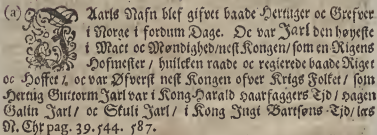 (a) Jarls Nafn blef gifvet baade Hertuger oc Grefver
i Norge i fordum Dage. Oc var Jarl den høyeste
i Mact oc Møndighed/ nest Kongen/ som en Rigens
Hofmester/ huilcken raade oc regierede baade Riget
oc Hoffet/ oc var Øfverst nest Kongen ofver Krigs Folket/ som
Hertug Guttorm Jarl var i Kong Harald Haarfaggers Tjd/ Hagen
Galin Jarl/ oc Skuli Jarl/ i Kong Ingi Bartsøns Tjd/ læs
N. Chr pag. 39. 544. 587.